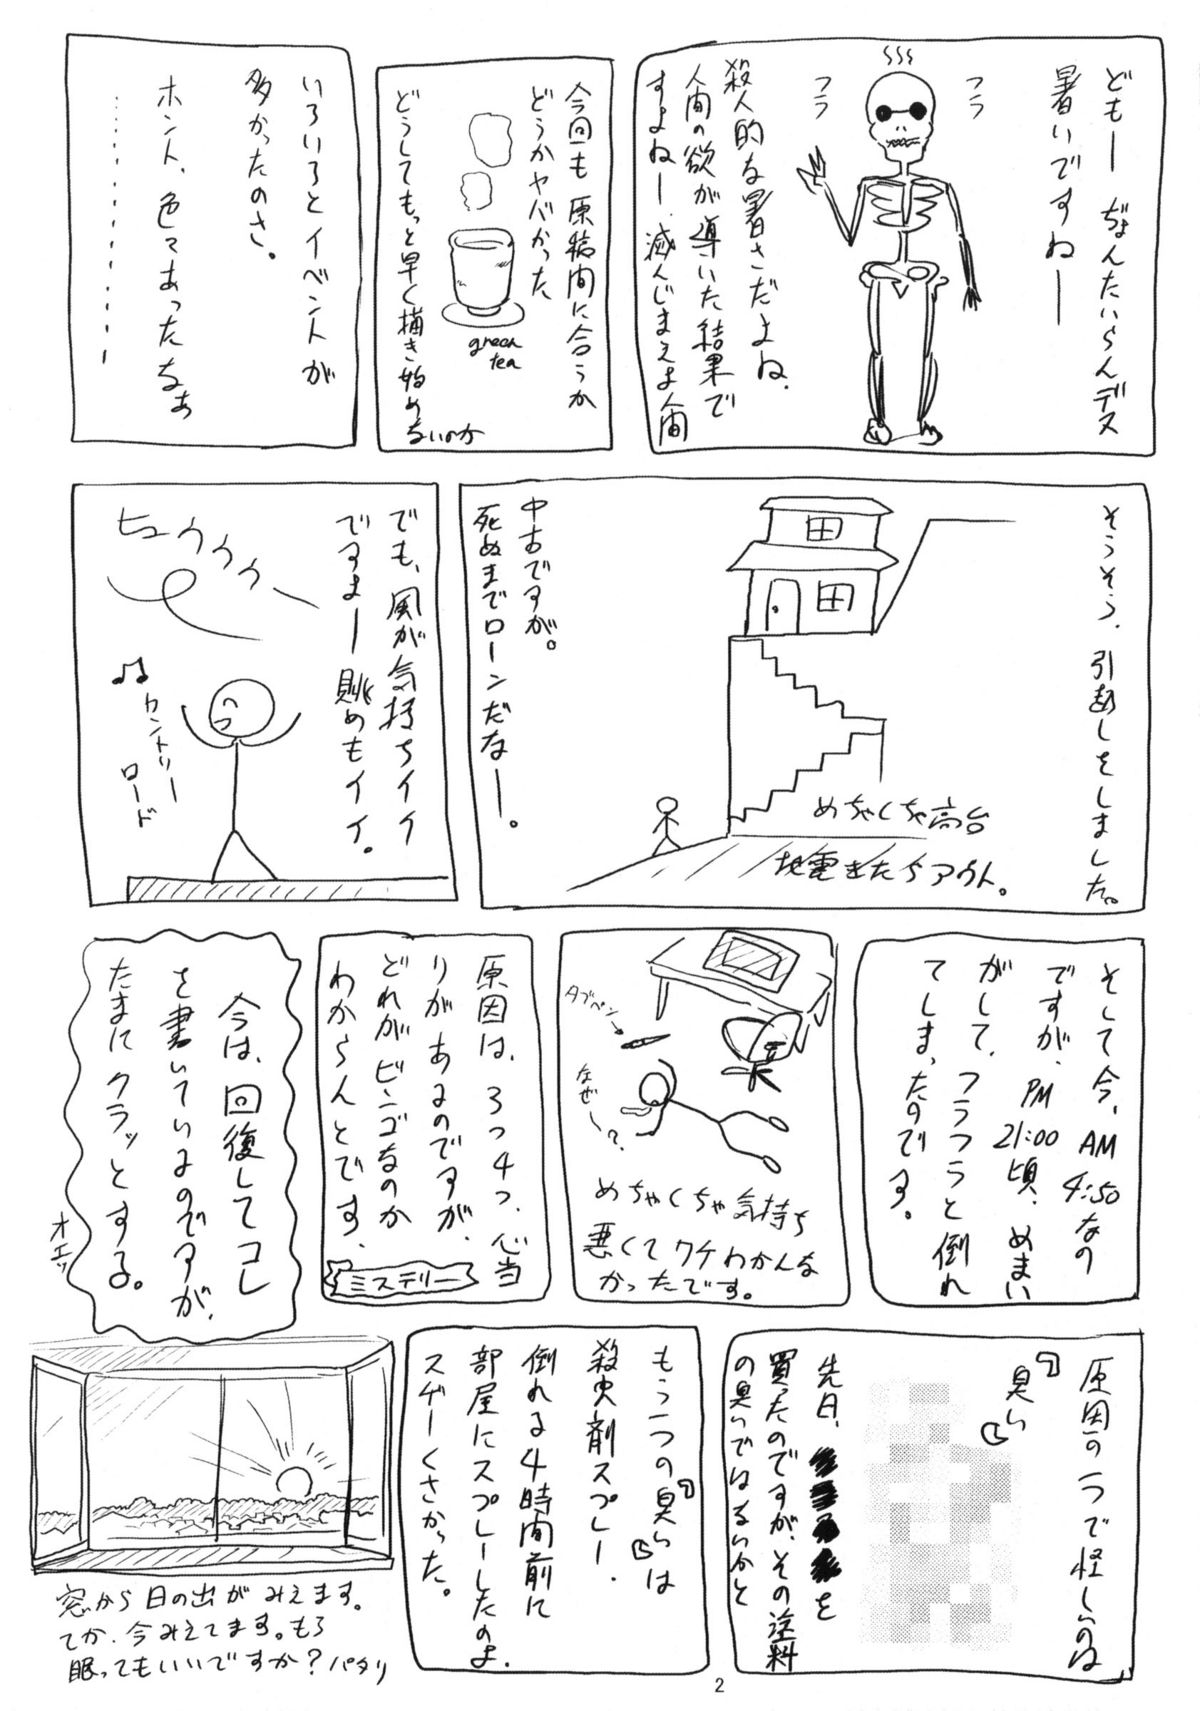 どもー ぢょんたいらんデス
暑いですねー
フラ
フラ
殺人的な暑さだよね、
人間の欲が導いた結果で
すよねー、滅んじまえよ人間
今回も原稿間に合うか
どうかヤバかった
どうしてもっと早く描き始め
ないのか
green
tea
いろいろとイベントが
多かったのさ。
ホント、色々あったなぁ
そうそう、引越しをしました。
めちゃくちゃ高台
地震きたらアウト。
中古ですが。
死ぬまでローンだなー。
でも、風が気持ちイイ
ですよー眺めもイイ。
ヒュウウウー
♫カントリー
ロード
そして今、AM
4:50なの
ですが、PM
21:00
頃、めまい
がして、フラフラと倒れ
てしまったのです。
タブペン
なぜ〜?
めちゃくちゃ気持ち
悪くてワケわかんな
かったです。
原因は、3つ4つ、心当
りがあるのですが、
どれがビンゴなのか
わからんとです、
ミステリー
今は、回復してコレ
を書いているのですが、
たまにクラッとする。
オエッ
原因の一つで怪しいのは
「臭い」
先日、
を
買ったのですが、その塗料
の臭いではないかと
もう一つの「臭い」は
殺虫剤スプレー、
倒れる4時間前に
部屋にスプレーしたのよ、
スゲーくさかった。
窓から日の出がみえます。
てか、今みえてます。もう
眠ってもいいですか?パタリ
2